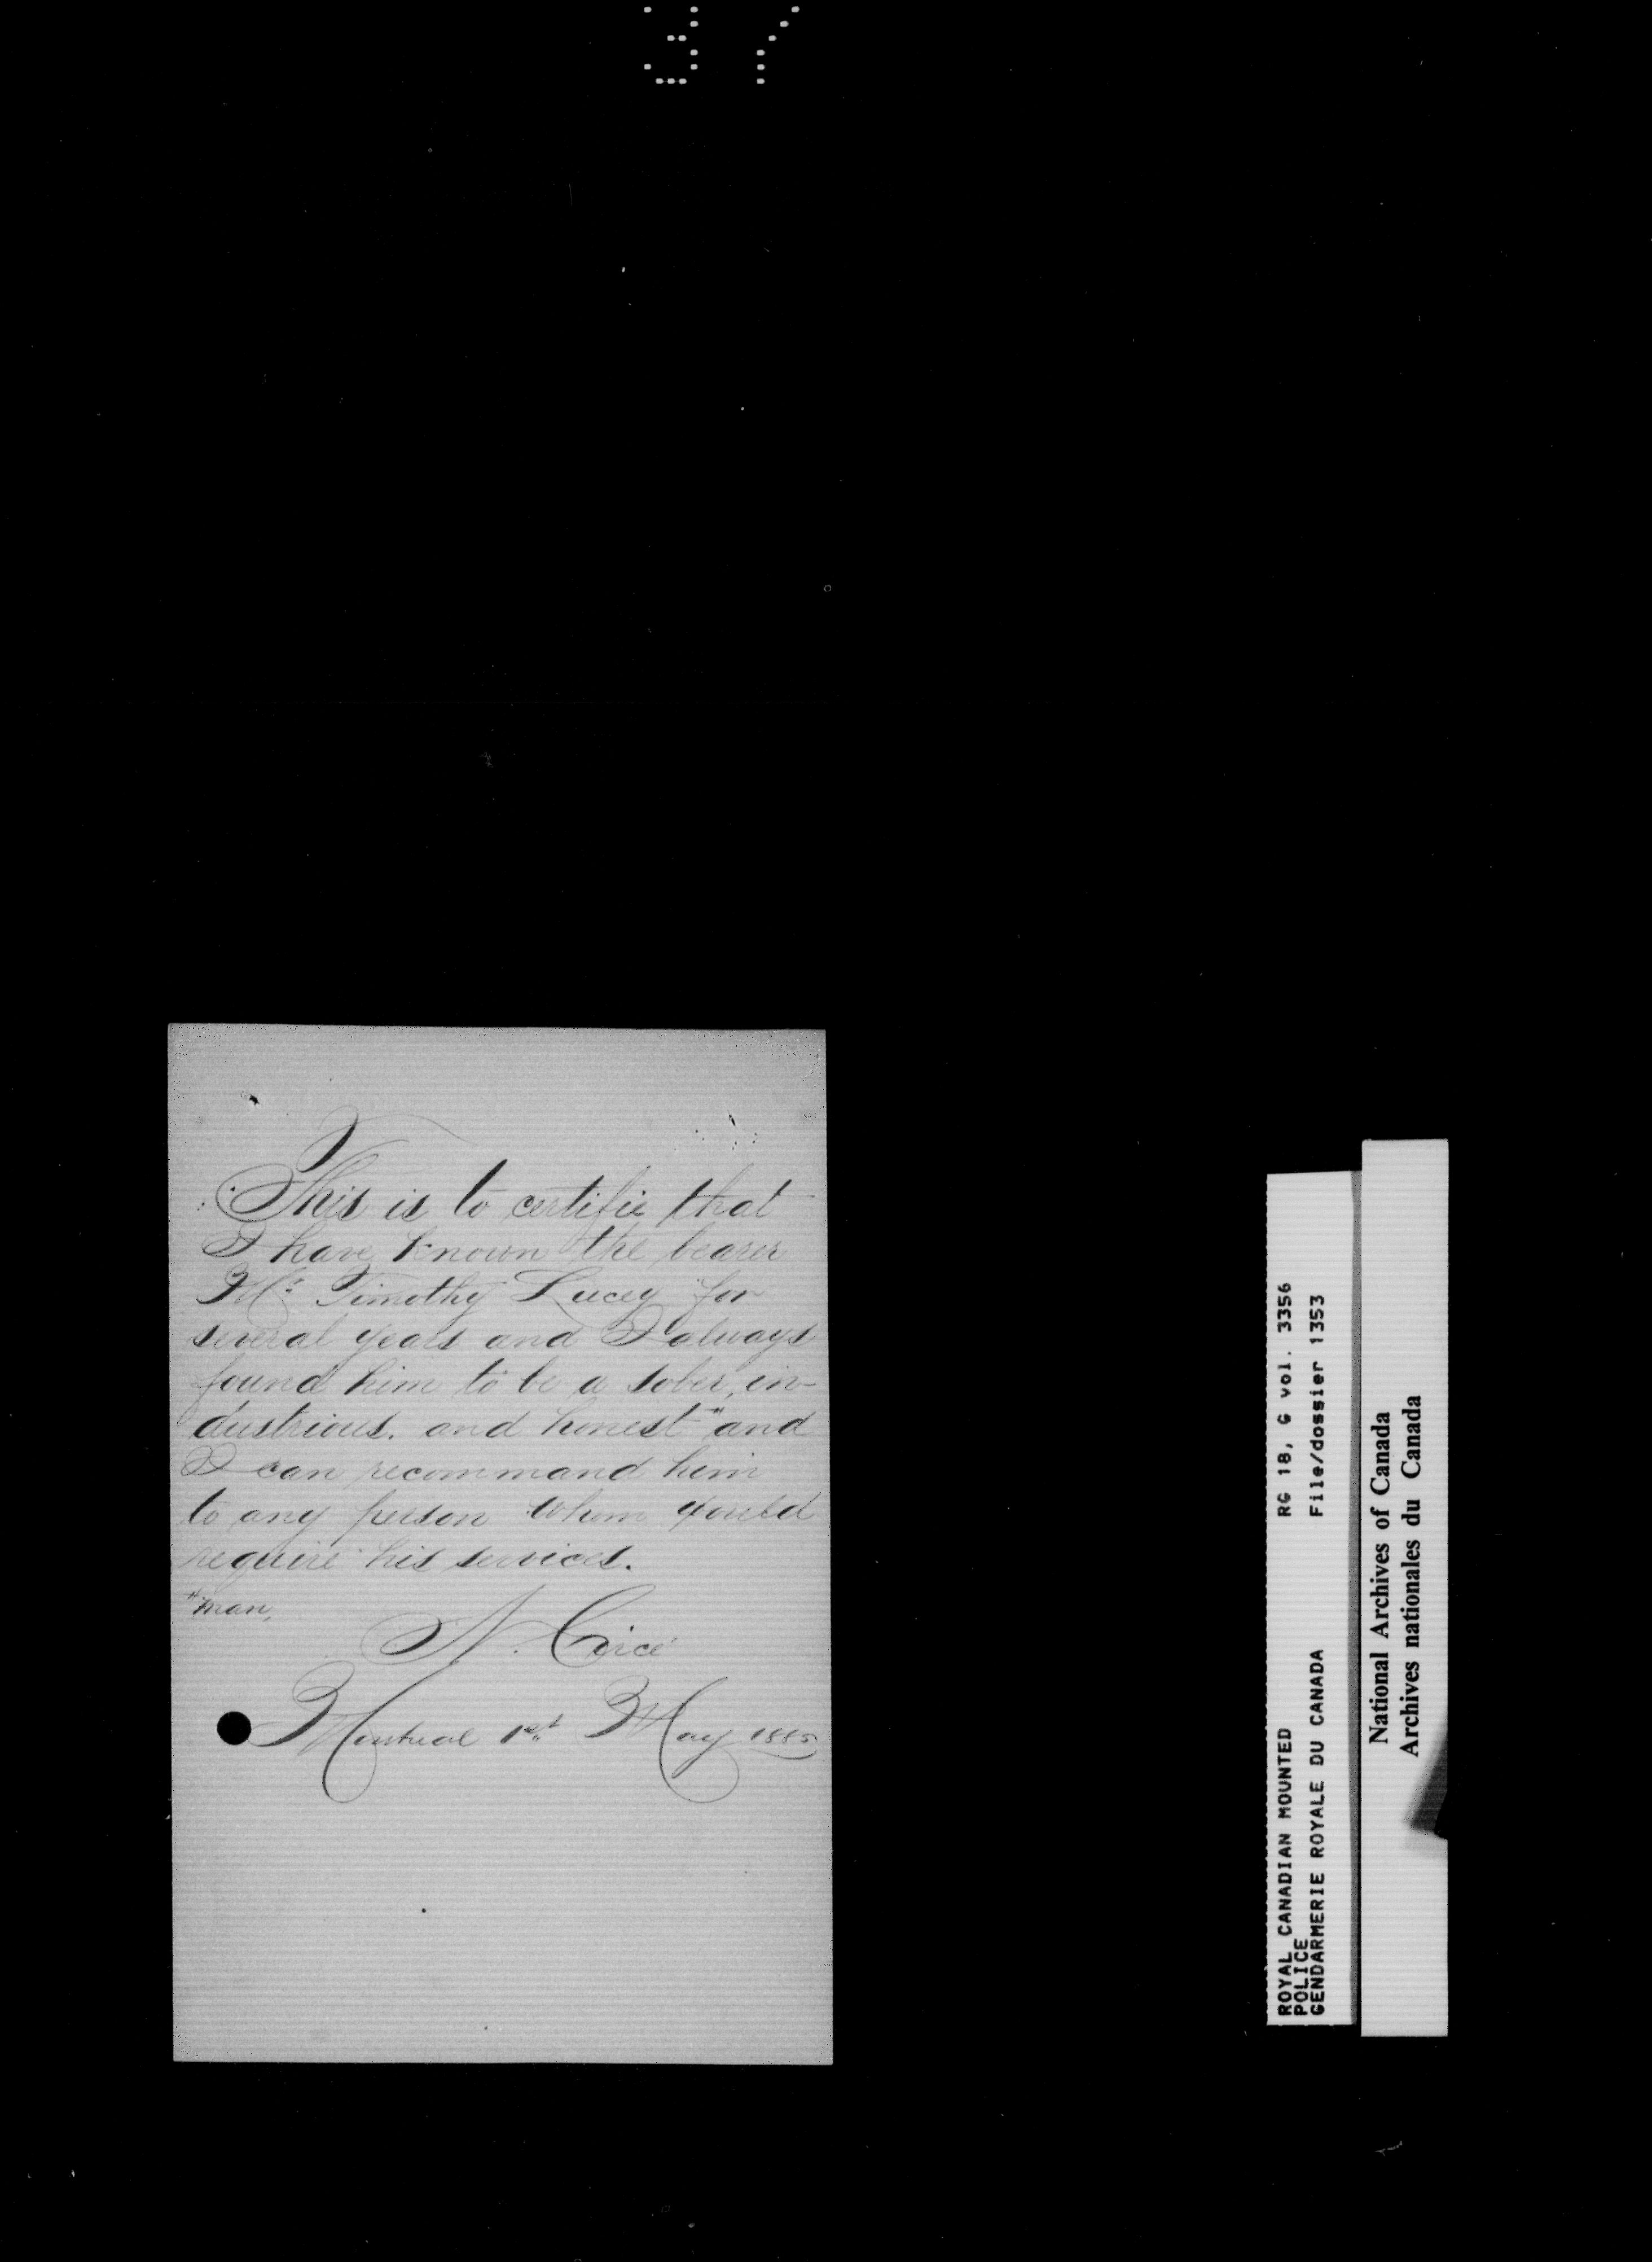 37
This is to certifie that
I have known the bearer
Mr. Timothy Lucey for
several years and I always
found him to be a sober, in-
dustrious. and honest # and
I can recommand him
to any person whom would
require his services.
# man,
N. Circé
Montreal 1st May 1885
ROYAL CANADIAN MOUNTED RG 18, G vol. 3356
POLICE
GENDARMERIE ROYALE DU CANADA File/dossier 1353
National Archives of Canada
Archives nationales du Canada